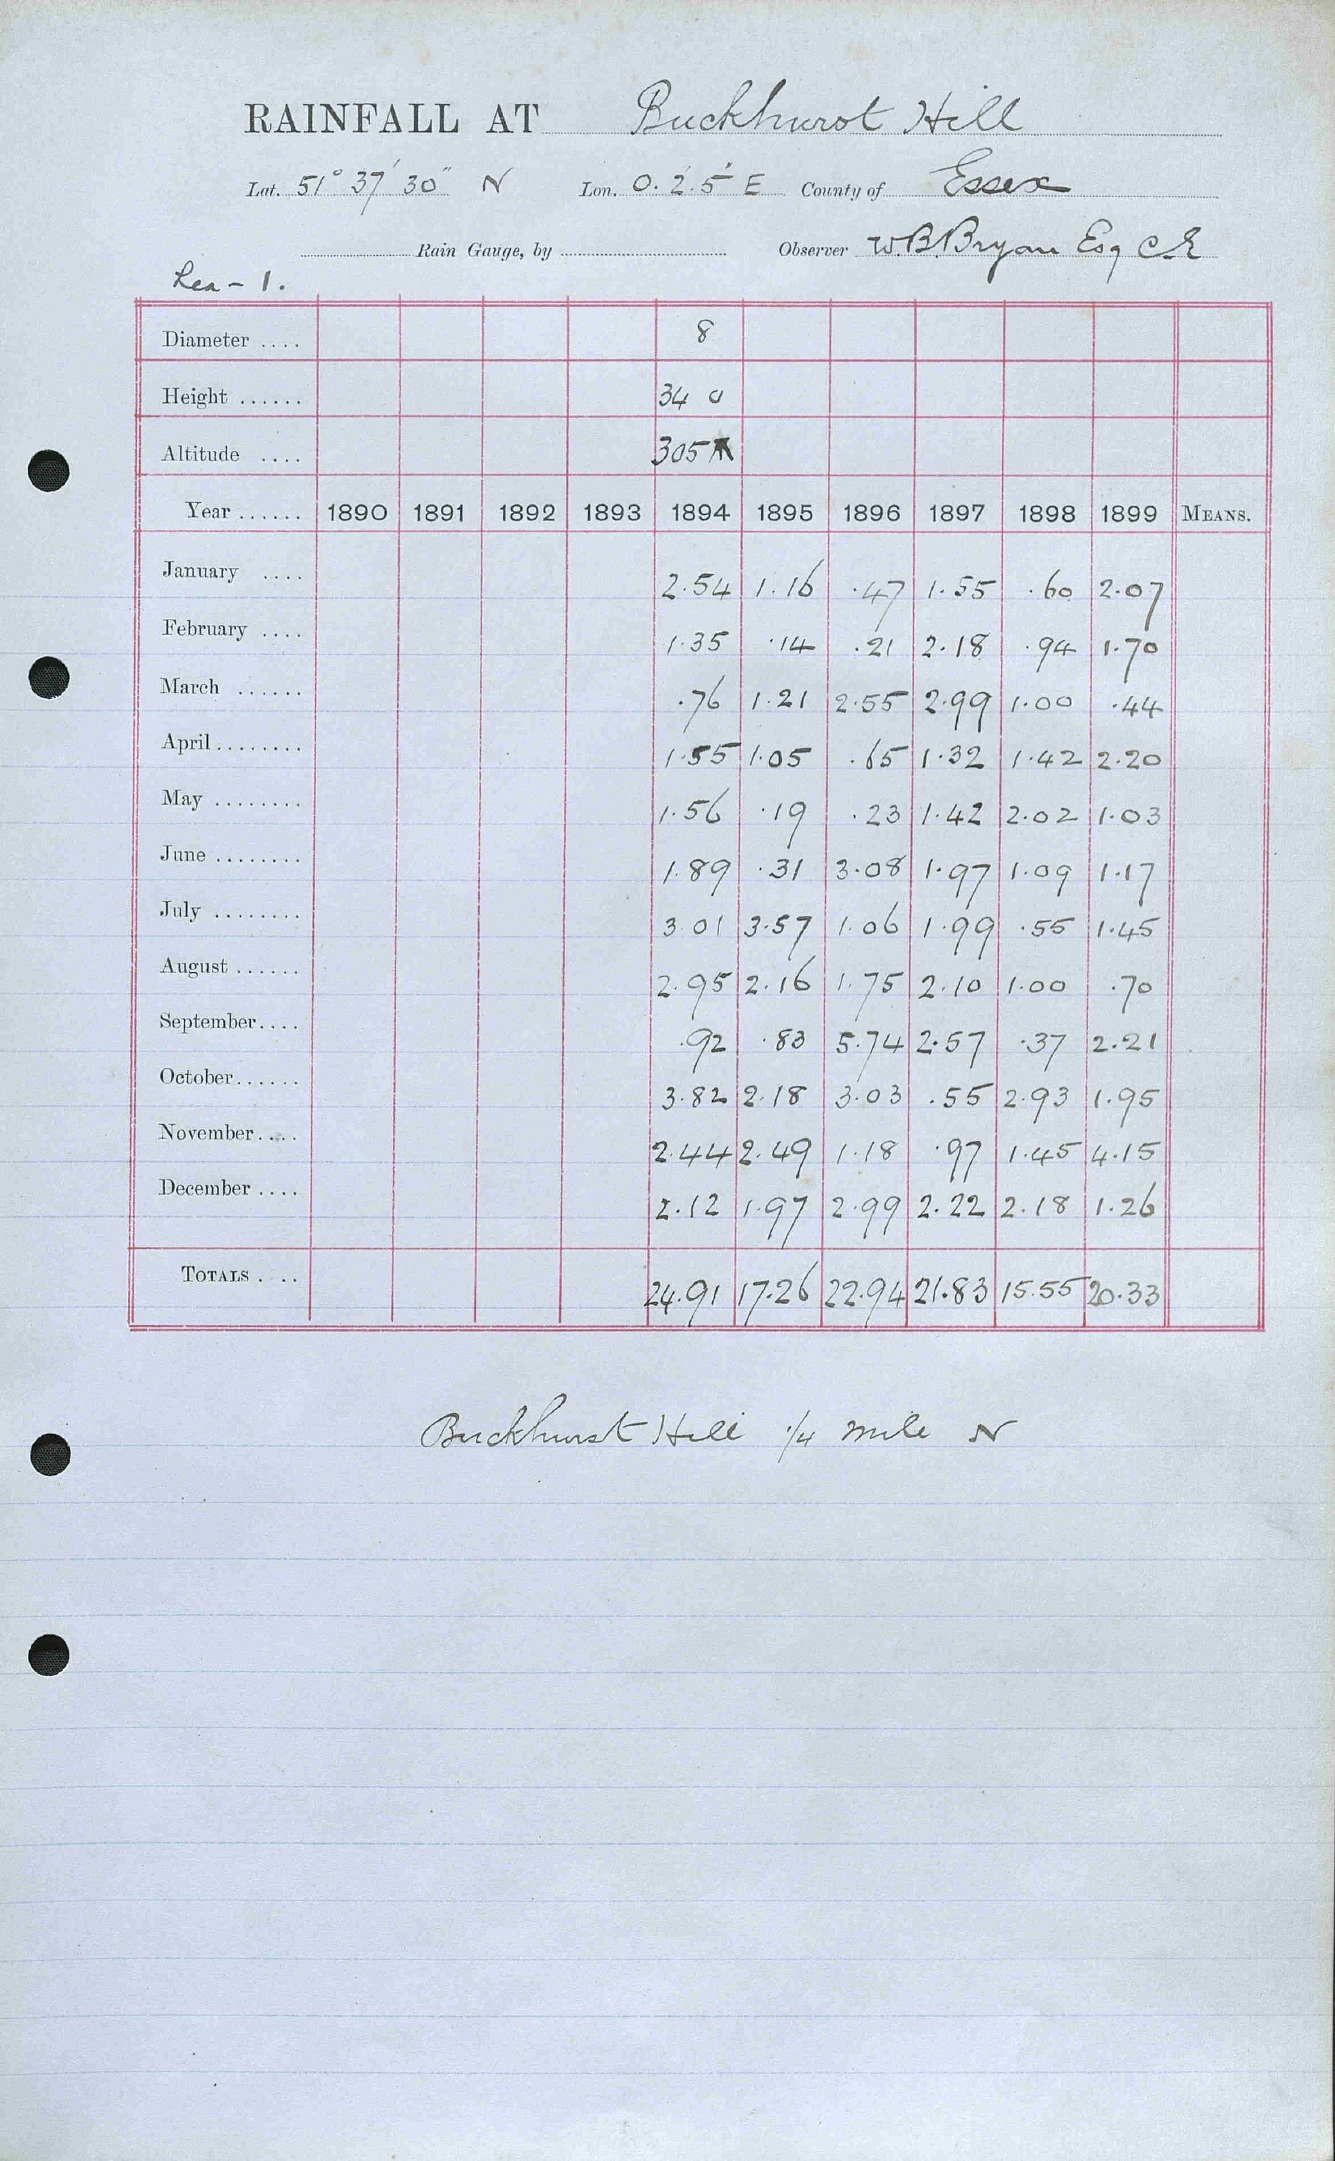 RAINFALL AT Buckhurst Hill
Lat. 51° 37' 30" N Lon. 0. 2.5' E County of Essex
Rain Gauge, by Observer W.B. Bryan Esq C.E
Lea - 1.
Diameter .... 8
Height ...... 34 0
Altitude .... 305
Year ...... 1890 1891 1892 1893 1894 1895 1896 1897 1898 1899 MEANS.
January .... 2.54 1.16 .47 1.55 .60 2.07
February .... 1.35 .14 .21 2.18 .94 1.70
March ...... .76 1.21 2.55 2.99 1.00 .44
April ........ 1.55 1.05 .65 1.32 1.42 2.20
May ........ 1.56 .19 .23 1.42 2.02 1.03
June ........ 1.89 .31 3.08 1.97 1.09 1.17
July ........ 3.01 3.57 1.06 1.99 .55 1.45
August ...... 2.95 2.16 1.75 2.10 1.00 .70
September.... .92 .83 5.74 2.57 .37 2.21
October...... 3.82 2.18 3.03 .55 2.93 1.95
November.... 2.44 2.49 1.18 .97 1.45 4.15
December .... 2.12 1.97 2.99 2.22 2.18 1.26
TOTALS .... 24.91 17.26 22.94 21.83 15.55 20.33
Buckhurst Hill 1/4 mile N